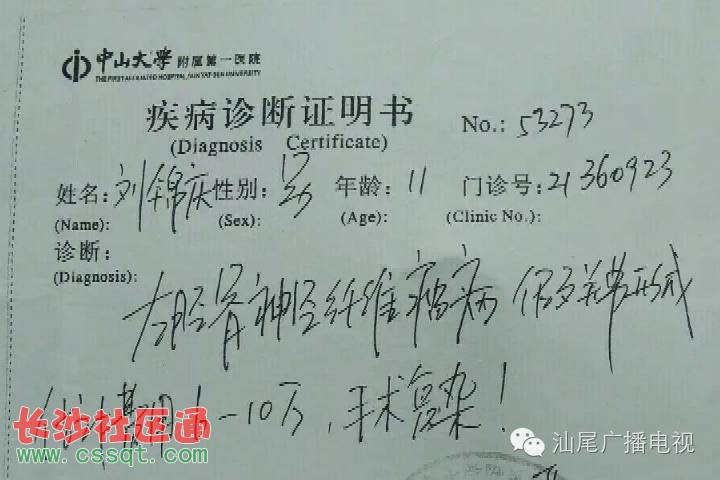 中山大學 附属第一医院
THE FIRST AFFILIATED HOSPITAL, SUN YAT-SEN UNIVERSITY
疾病诊断证明书
(Diagnosis Certificate)
No.: 53273
姓名: 刘锦庆 性别: 男 年龄: 11 门诊号: 21360923
(Name): (Sex): (Age): (Clinic No.):
诊断:
(Diagnosis):
左胫骨神经纤维瘤病 假关节形成
-10万, 手术复杂!
长沙社区通
www.cssqt.com
汕尾广播电视